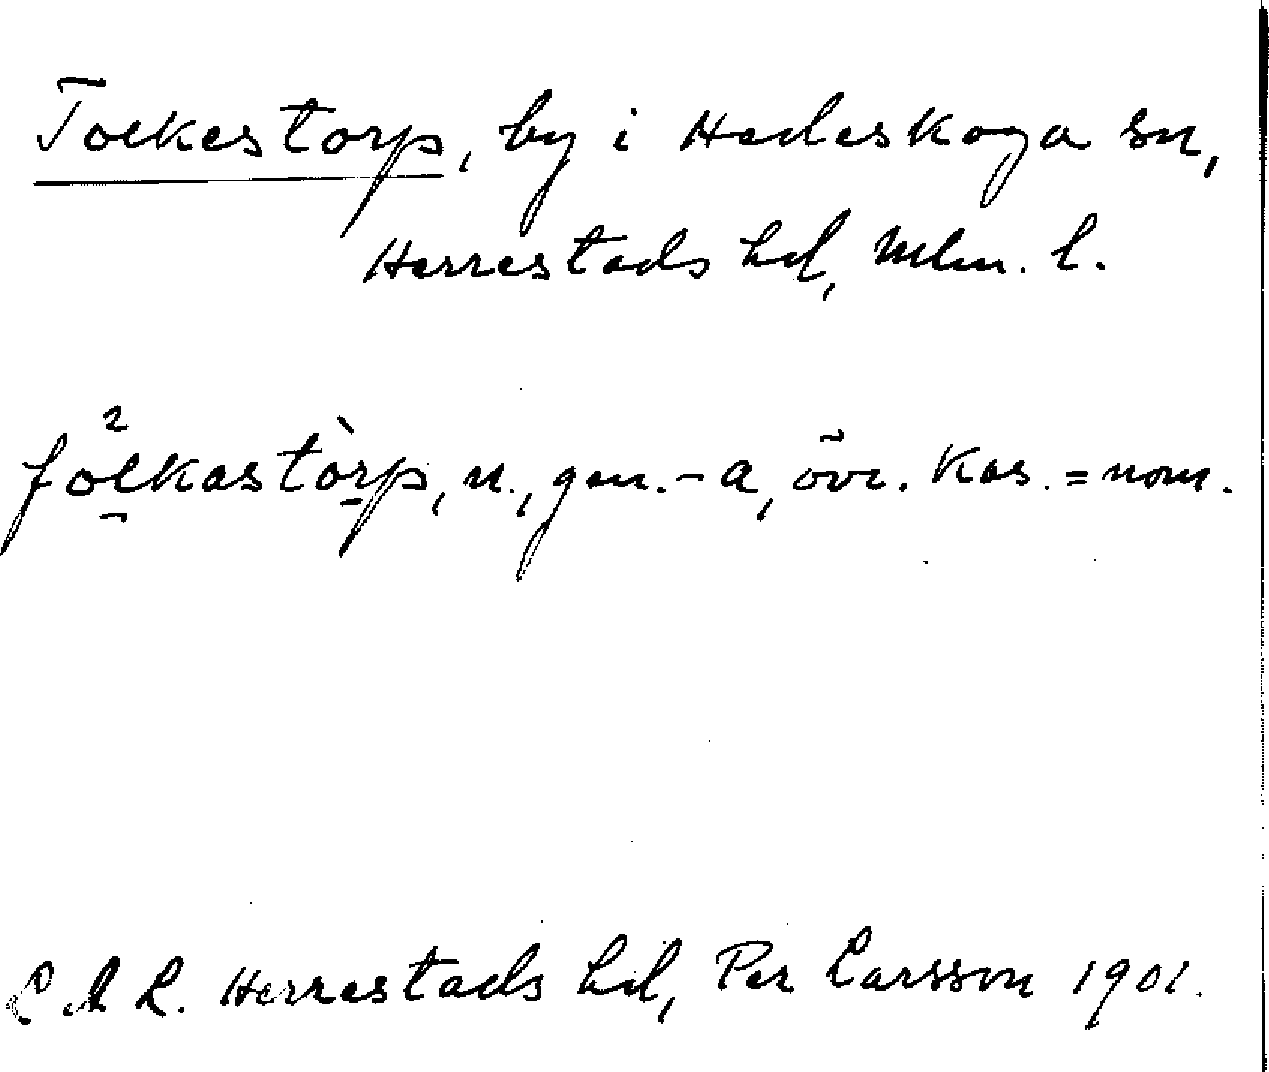 Tolkestorp, by i Hedeskoga sn,
Herrestads hd, Mlm. l.
fo²lkastòrp, n., gen. -a, övr. kas. = nom.
L A L. Herrestads hd, Per Larsson 1901.